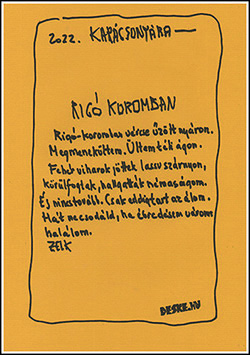 2022. KARÁCSONYÁRA
RIGÓ KOROMBAN
Rigó-koromban vércse űzött nyáron.
Megmenekültem. Ültem fák ágon.
Fehér viharok jöttek lassu szárnyon,
körülfogtak, hallgatták némaságom.
És nincs tovább. Csak eddig tart az álom.
Hát ne csodáld, ha ébredésem várom
halálom.
ZELK
DESKE.HU